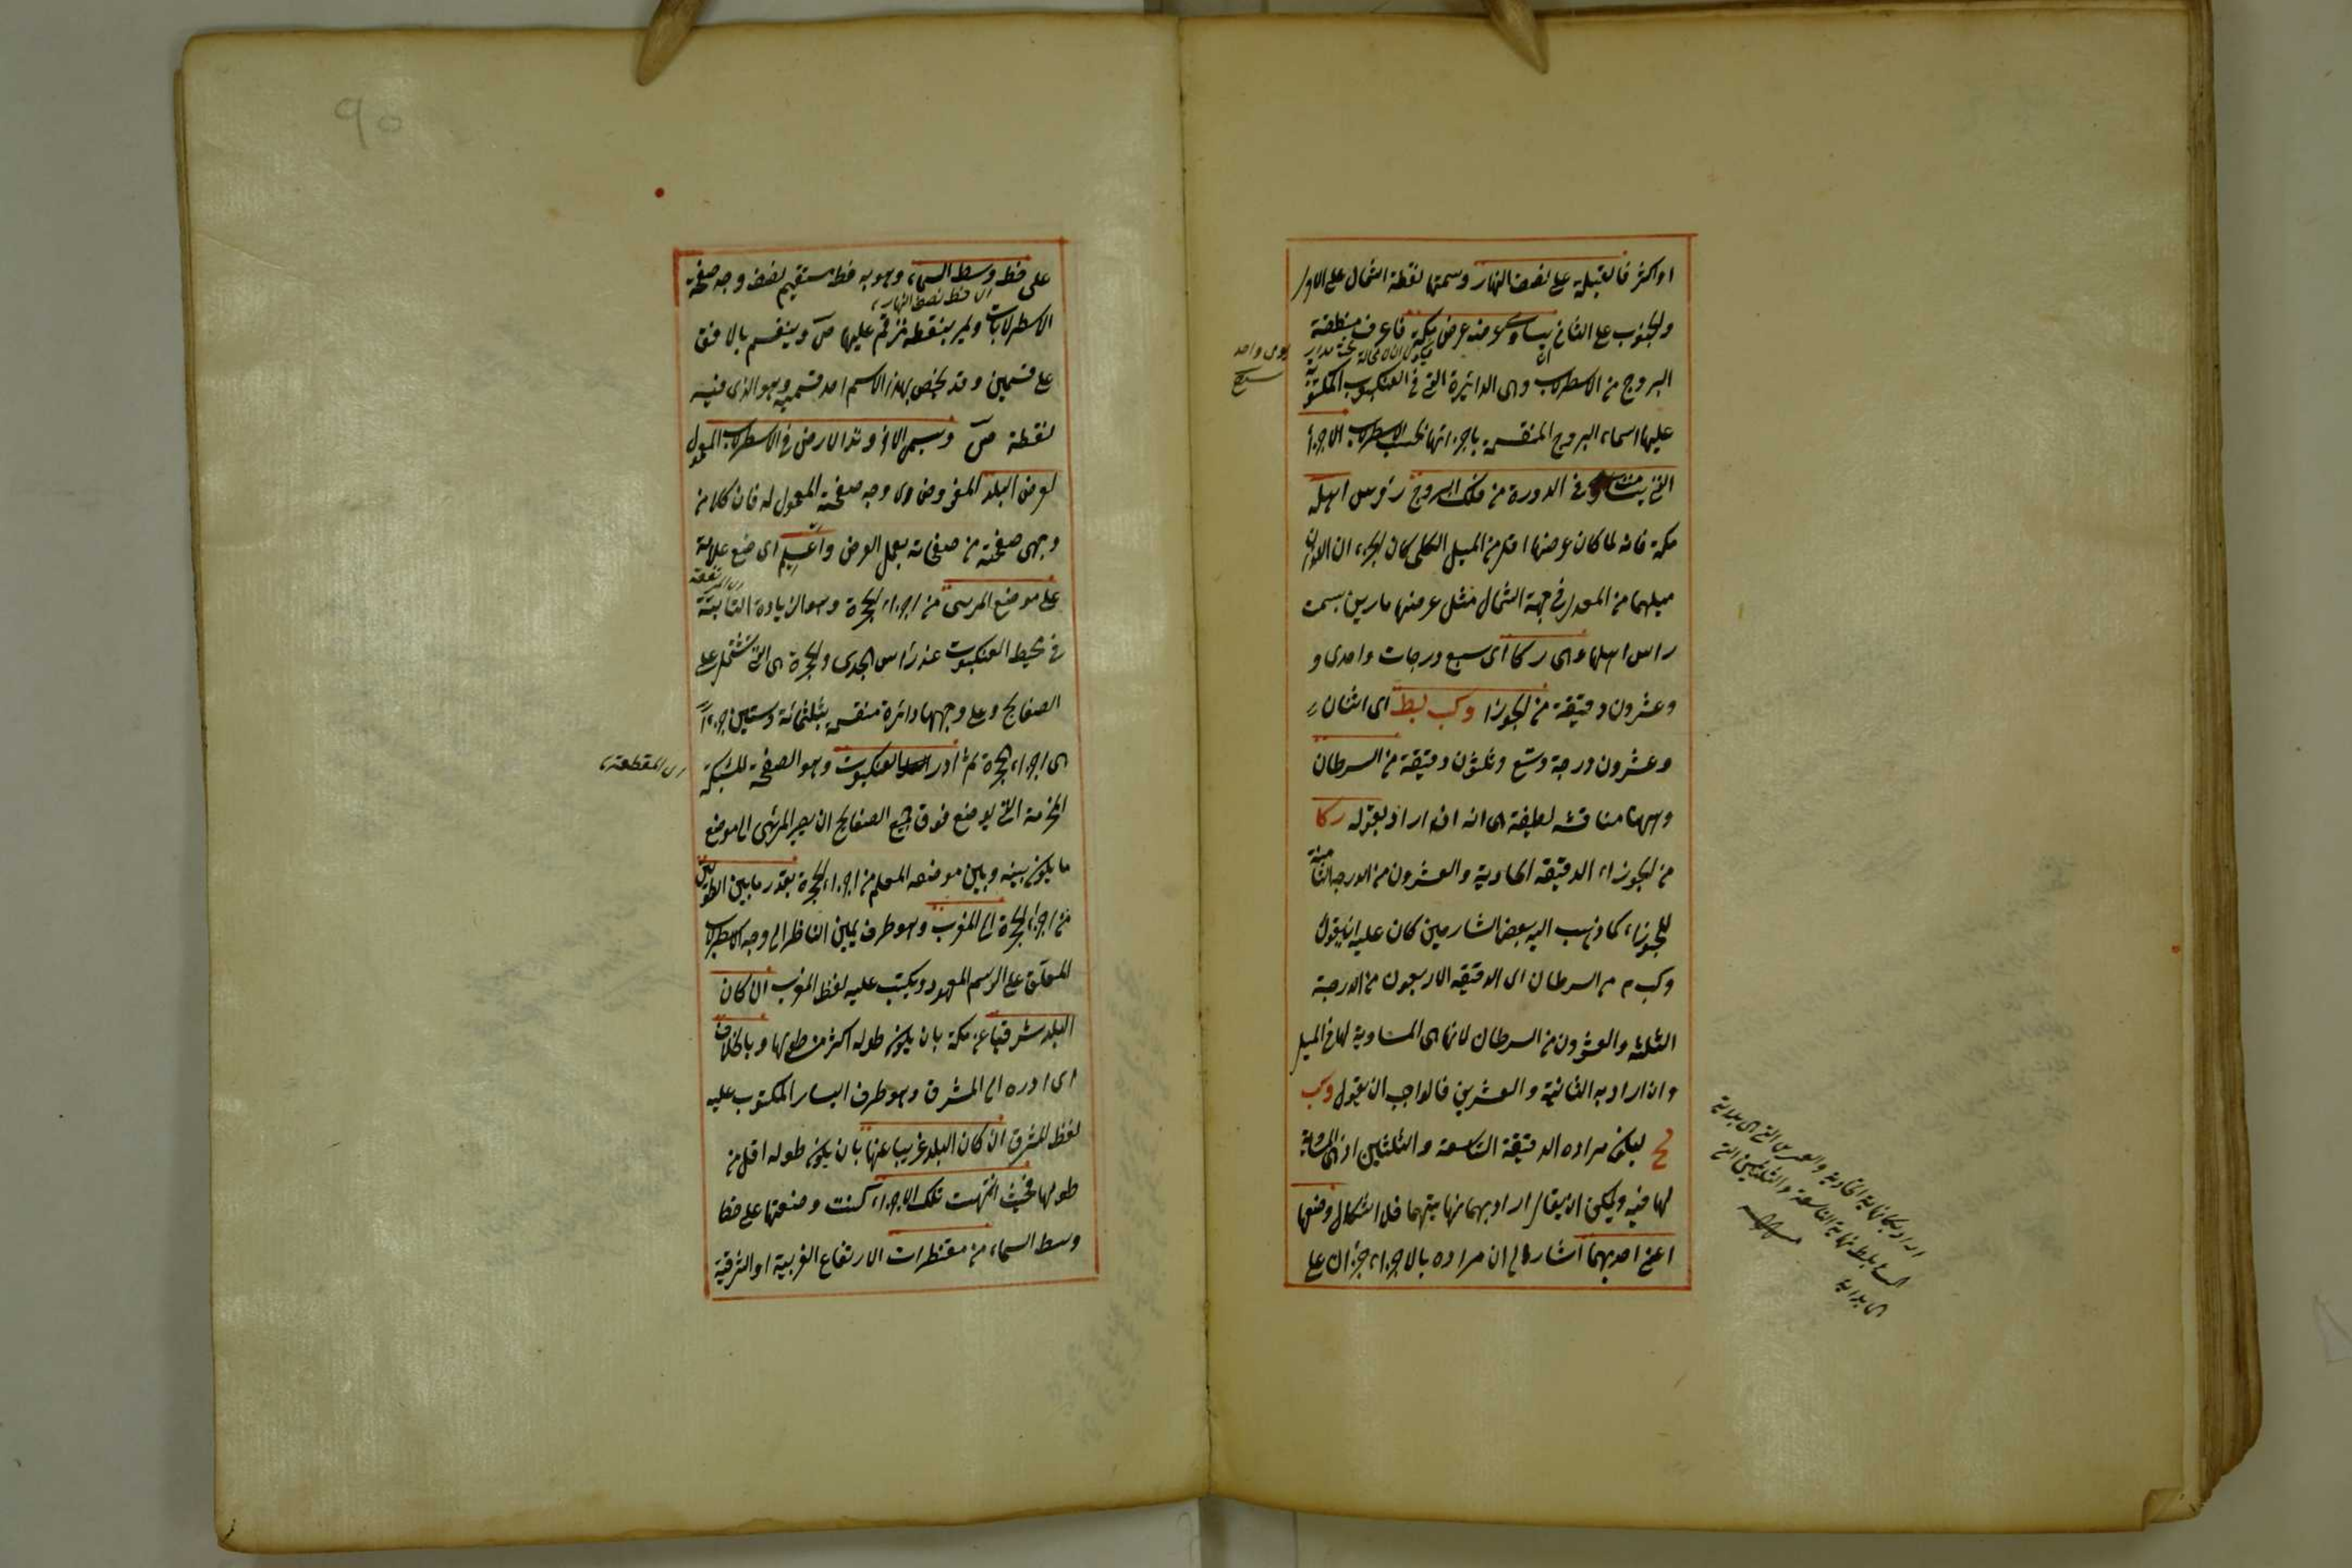 او اكثر فالقبلة على نصف النهار وسمتها نقطة الشمال على الاول
والجنوب على الثاني يساوى عرضه عرض مكة فاعرف منطقة
البروج من الاسطرلاب وهى الدائرة التى فى العنكبوت المكتوبة
عليها اسماء البروج المنقسمة باجزائها بحسب الاسطرلاب الاجزاء
التى يتسامت فى الدورة من فلك البروج رؤس اهل
مكة فانه لما كان عرضها اقل من الميل الكلى كان الجزءان اللذان
ميلهما من المعدل فى جهة الشمال مثل عرضها مارين بسمت
راس اهلها وهى ز كا اى سبع درجات واحدى و
وعشرون دقيقة من الجوزا وكب لط اى اثنان
وعشرون درجة وتسع وثلثون دقيقة من السرطان
وههنا مناقشه لطيفة هى انه ان اراد بقوله ز كا
من الجوزاء الدقيقه الحادية والعشرون من الدرجة الثامنة
للجوزاء كما ذهب اليه بعض الشارحين كان عليه ان يقول
وكب م من السرطان اى الدقيقه الاربعون من الدرجة
الثلثه والعشرون من السرطان لانها هى المساوية لها فى الميل
وان اراد به الثانية والعشرين فالواجب ان يقول وكب
لح ليكون مراده الدقيقة التاسعة والثلثين اذ هى المساوية
لها فيه ويمكن ان يقال اراد بهما نهايتهما فلا اشكال وضعها
اعنى احديهما اشارة الى ان مراده بالاجزاء جزءان على
على خط وسط السماء وهو به خط مستقيم نصف وجه صفحة
اى خط نصف النهار
الاسطرلابات ويمر بنقطة رقم عليها ص وينقسم بالافق
على قسمين وقد يخص بهذا الاسم احد قسميه وهو الذى فيه
نقطة ص ويسمى الاخر وتد الارض فى الاسطرلاب المعمول
لعرض البلد المفروض وفى وجه صفحته المعمول له فان كلا من
وجهى صفحة من صفحاته يعمل لعرض واعلم اى ضع علامة
على موضع المرى من اجزاء الحجرة وهو الزيادة الثابتة
فى محيط العنكبوت عند رأس الجدى والحجرة هى التى تشتمل على
الصفايح وعلى وجهها دائرة منقسمة بثلثمائة وستين جزءا
هى اجزاء الحجرة ثم ادر العنكبوت وهو الصفحة المشبكة
المخرمة التى يوضع فوق جميع الصفايح ان يصير المرى الى موضع
ما يكون بينه وبين موضعه المعلم من اجزاء الحجرة بقدر ما بين الطولين
من اجزاء الحجرة الى المغرب وهو طرف يمين الناظر الى وجه الاسطرلاب
المعلق على الرسم المعهود ويكتب عليه لفظ المغرب ان كان
البلد شرقيا عن مكة بان يكون طوله اكثر من طولها وبالخلاف
اى ادره الى المشرق وهو طرف اليسار المكتوب عليه
لفظ المشرق ان كان البلد غربيا عنها بان يكون طوله اقل من
طولها فحيث انتهت تلك الاجزاء كنت وضعتها على خط
وسط السماء من مقنطرات الارتفاع الغربية او الشرقية